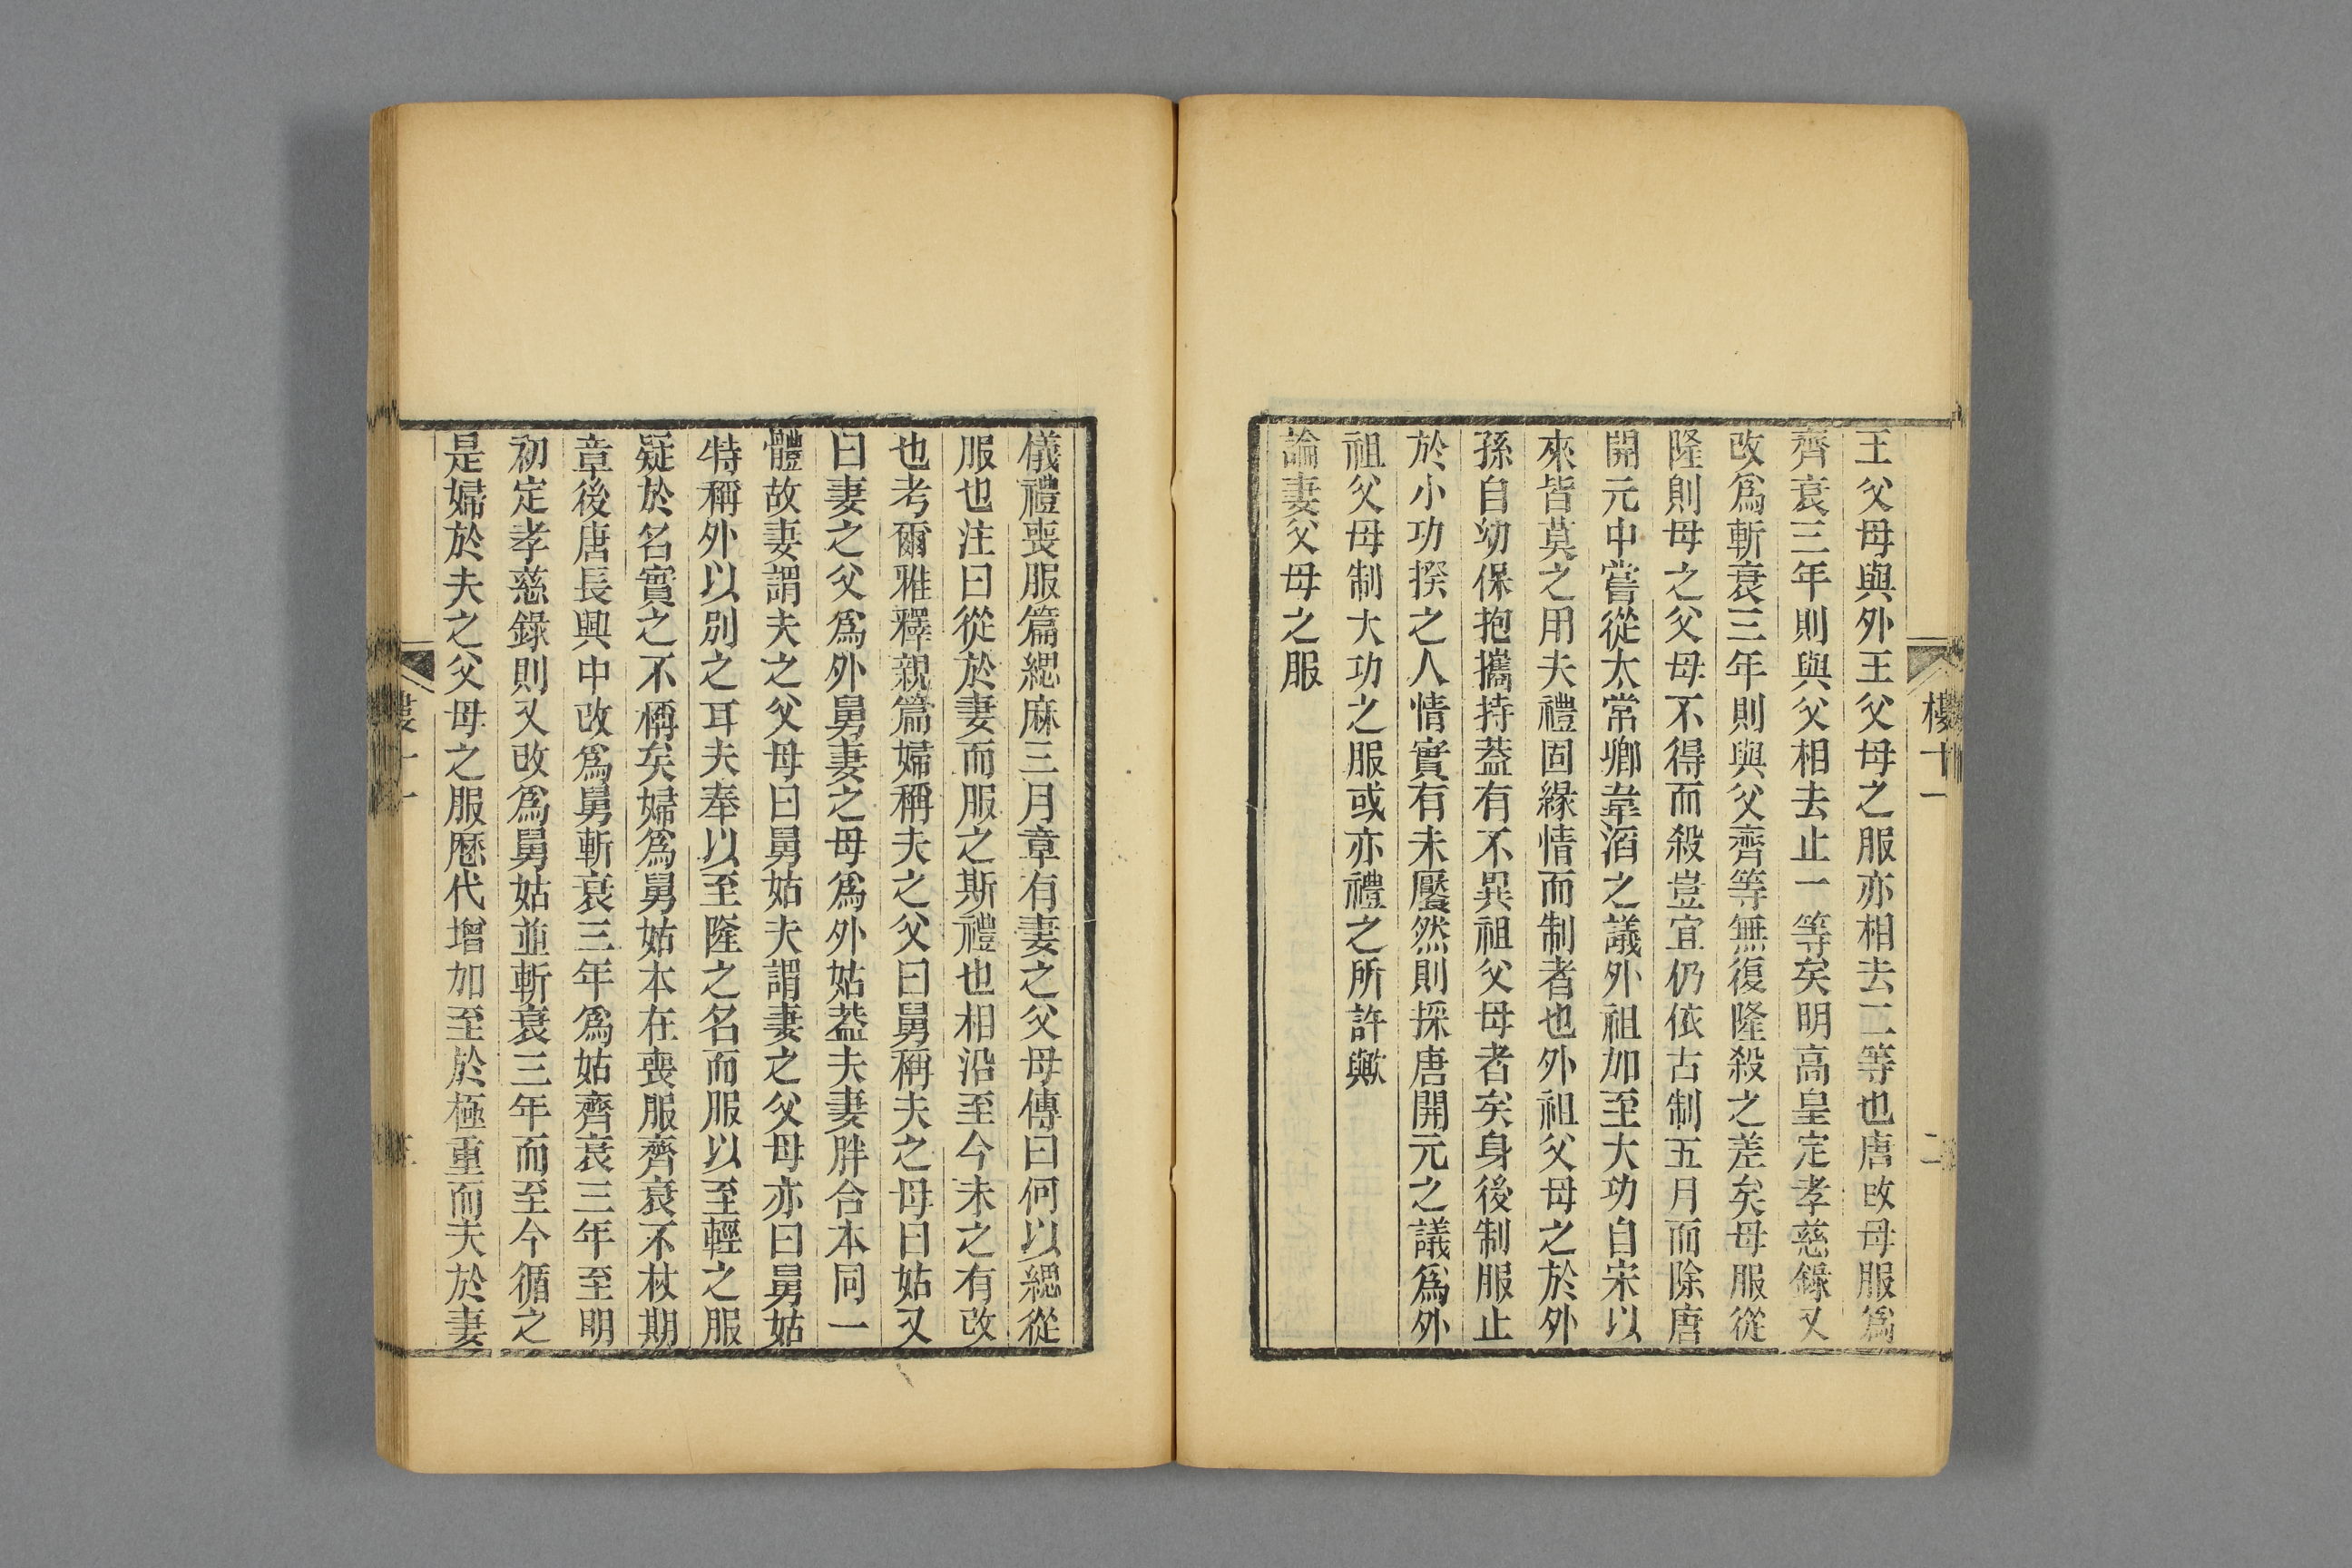 樓十一
二
王父母與外王父母之服亦相去二等也唐改母服爲
齊衰三年則與父相去止一等矣明高皇定孝慈錄又
改爲斬衰三年則與父齊等無復隆殺之差矣母服從
隆則母之父母不得而殺豈宜仍依古制五月而除唐
開元中嘗從太常卿韋滔之議外祖加至大功自宋以
來皆莫之用夫禮固緣情而制者也外祖父母之於外
孫自幼保抱攜持葢有不異祖父母者矣身後制服止
於小功揆之人情實有未饜然則採唐開元之議爲外
祖父母制大功之服或亦禮之所許歟
論妻父母之服
儀禮喪服篇緦麻三月章有妻之父母傳曰何以緦從
服也注曰從於妻而服之斯禮也相沿至今未之有改
也考爾雅釋親篇婦稱夫之父曰舅稱夫之母曰姑又
曰妻之父爲外舅妻之母爲外姑葢夫妻胖合本同一
體故妻謂夫之父母曰舅姑夫謂妻之父母亦曰舅姑
特稱外以別之耳夫奉以至隆之名而服以至輕之服
疑於名實之不稱矣婦爲舅姑本在喪服齊衰不杖期
章後唐長興中改爲舅斬衰三年爲姑齊衰三年至明
初定孝慈錄則又改爲舅姑並斬衰三年而至今循之
是婦於夫之父母之服歷代增加至於極重而夫於妻